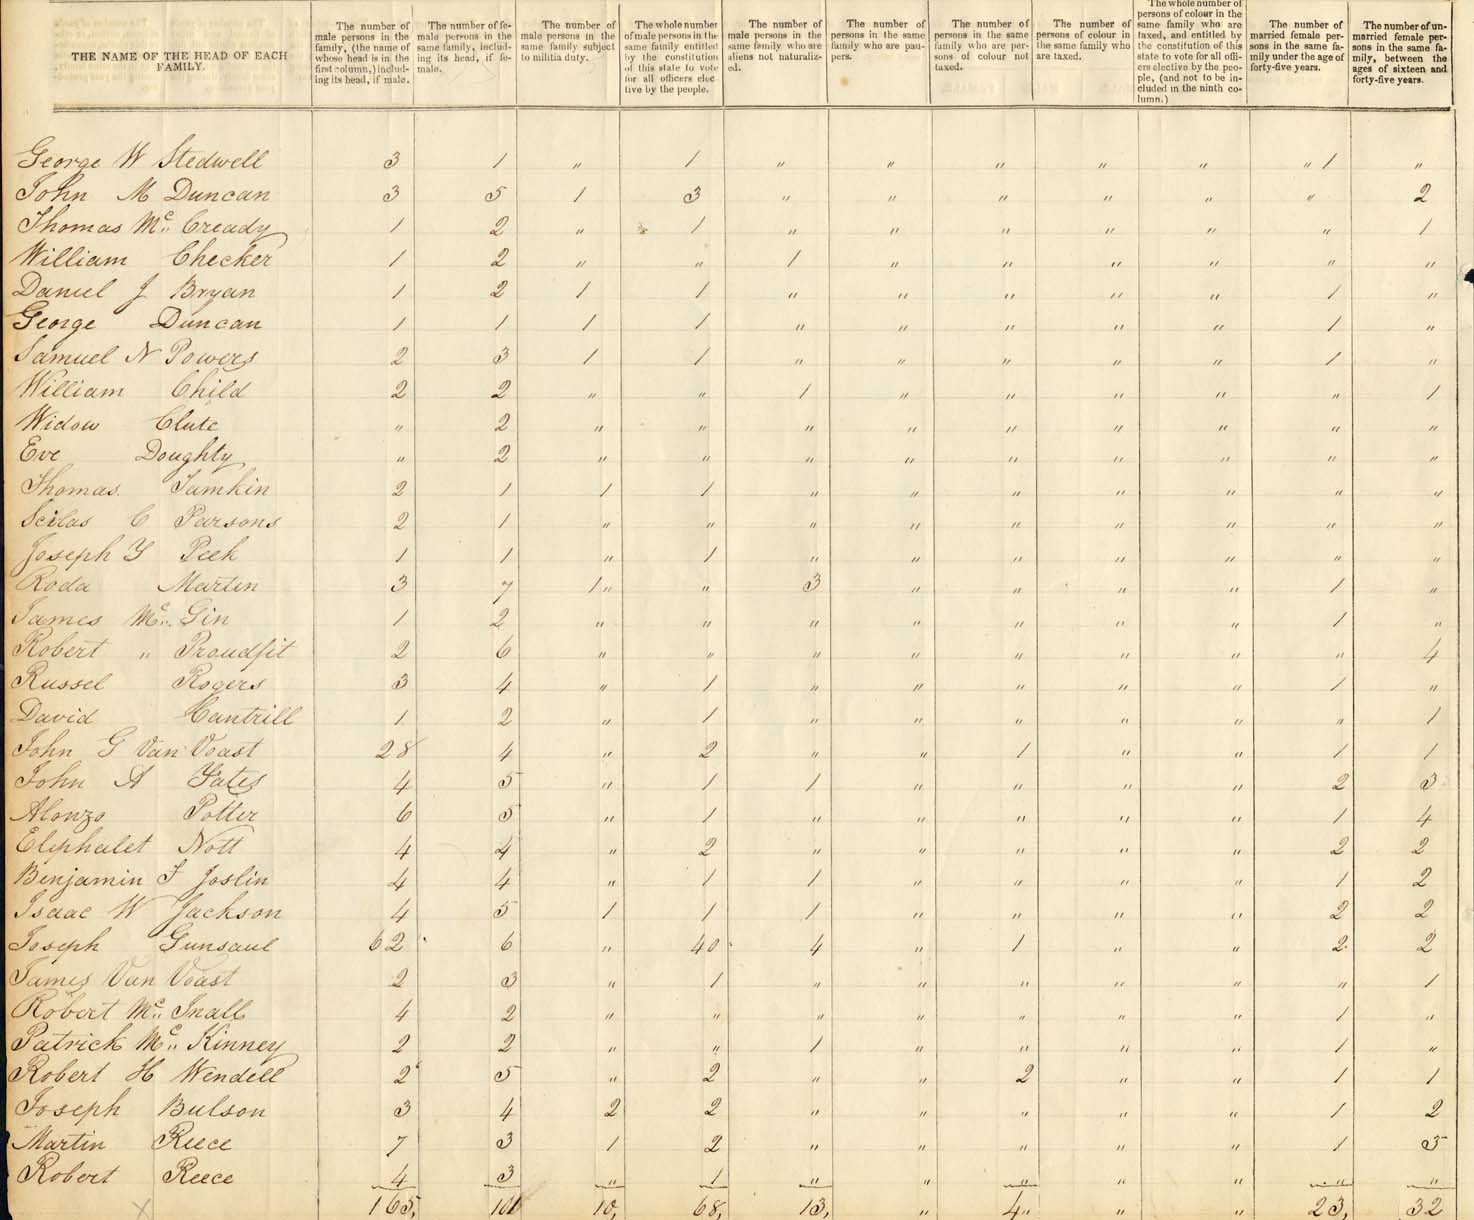 THE NAME OF THE HEAD OF EACH FAMILY. | The number of male persons in the family, (the name of whose head is in the first column,) including its head, if male. | The number of female persons in the same family, including its head, if female. | The number of male persons in the same family subject to militia duty. | The whole number of male persons in the same family entitled by the constitution of this state to vote for all officers elective by the people. | The number of male persons in the same family who are aliens not naturalized. | The number of persons in the same family who are paupers. | The number of persons in the same family who are persons of colour not taxed. | The number of persons of colour in the same family who are taxed. | The whole number of persons of colour in the same family who are taxed, and entitled by the constitution of this state to vote for all officers elective by the people, (and not to be included in the ninth column.) | The number of married female persons in the same family under the age of forty-five years. | The number of unmarried female persons in the same family, between the ages of sixteen and forty-five years.
George W Stedwell 3 1 " 1 " " " " " " 1 "
John M Duncan 3 5 1 3 " " " " " " 2
Thomas Mc Cready 1 2 " 1 " " " " " " 1
William Checker 1 2 " " 1 " " " " " "
Daniel J Bryan 1 2 1 1 " " " " " 1 "
George Duncan 1 1 1 1 " " " " " 1 "
Samuel N Powers 2 3 1 1 " " " " " 1 "
William Child 2 2 " " 1 " " " " " 1
Widow Clute " 2 " " " " " " " " "
Eve Doughty " 2 " " " " " " " " "
Thomas Tamkin 2 1 1 1 " " " " " " "
Scilas C Parsons 2 1 " " " " " " " " "
Joseph Y Peek 1 1 " 1 " " " " " " "
Roda Martin 3 7 1 " " 3 " " " " 1 "
James Mc Gin 1 2 " " " " " " " 1 "
Robert " Proudfit 2 6 " " " " " " " " 4
Russel Rogers 3 4 " 1 " " " " " 1 "
David Cantrill 1 2 " 1 " " " " " " 1
John G Van Voast 28 4 " 2 " " 1 " " 1 1
John A Yates 4 5 " 1 1 " " " " 2 3
Alonzo Potter 6 5 " 1 " " " " " 1 4
Eliphalet Nott 4 4 " 2 " " " " " 2 2
Benjamin F Joslin 4 4 " 1 1 " " " " 1 2
Isaac W Jackson 4 5 1 1 1 " " " " 2 2
Joseph Gunsaul 62 6 " 40 4 " 1 " " 2 2
James Van Voast 2 3 " 1 " " " " " " 1
Robert Mc Inall 4 2 " " " " " " " 1 "
Patrick Mc Kinney 2 2 " " 1 " " " " 1 "
Robert H Wendell 2 5 " 2 " " 2 " " 1 1
Joseph Bulson 3 4 2 2 " " " " " 1 2
Martin Reece 7 3 1 2 " " " " " 1 3
Robert Reece 4 3 " 1 " " " " " " "
165, 101 10, 68, 13, " 4 " " " 23, 32